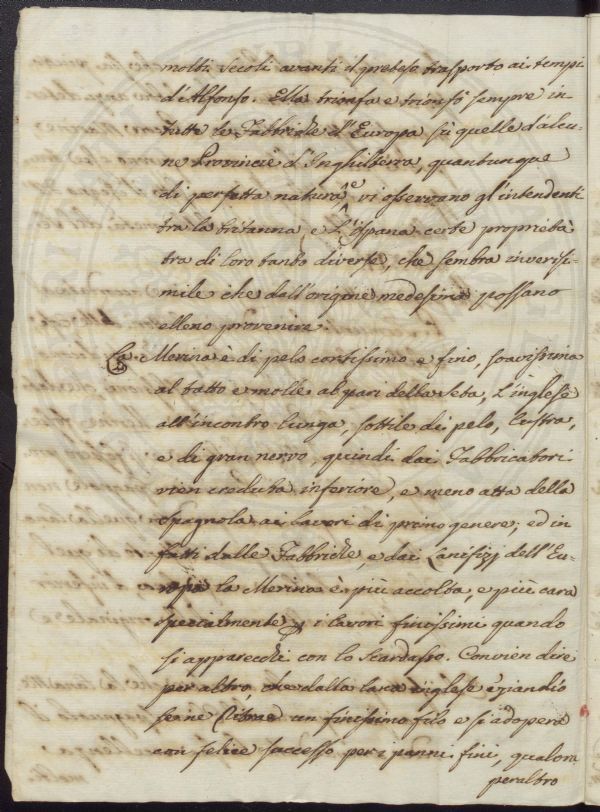 molti secoli avanti il preteso trasporto ai tempi
d'Alfonso. Ella trionfa e trionfò sempre in
tutte le Fabbriche d'Europa sù quelle d'alcu-
ne Provincie d'Inghilterra, quantunque
di perfetta natura vi osservano gl'intendenti
tra la britanna e l'ispana certe proprietà
tra di loro tanto diverse, che sembra inverisi-
mile che dall'origine medesima possano
elleno provenire.
La Merina è di pelo cortissimo e fino, soavissima
al tatto e molle al pari della seta, l'inglese
all'incontro lunga, sottile di pelo, lustra,
e di gran nervo, quindi dai Fabbricatori
vien creduta inferiore, e meno atta della
spagnola ai lavori di primo genere; ed in
fatti dalle Fabbriche, e dai Lanifizj dell'Eu-
ropa la Merina è più accolta, e più cara
specialmente i lavori finissimi quando
si apparecchi con lo scardasso. Convien dire
per altro, che dalla lana inglese eziandio
sene un finissimo filo e si adopera
con felice successo per i panni fini, qualora
peraltro